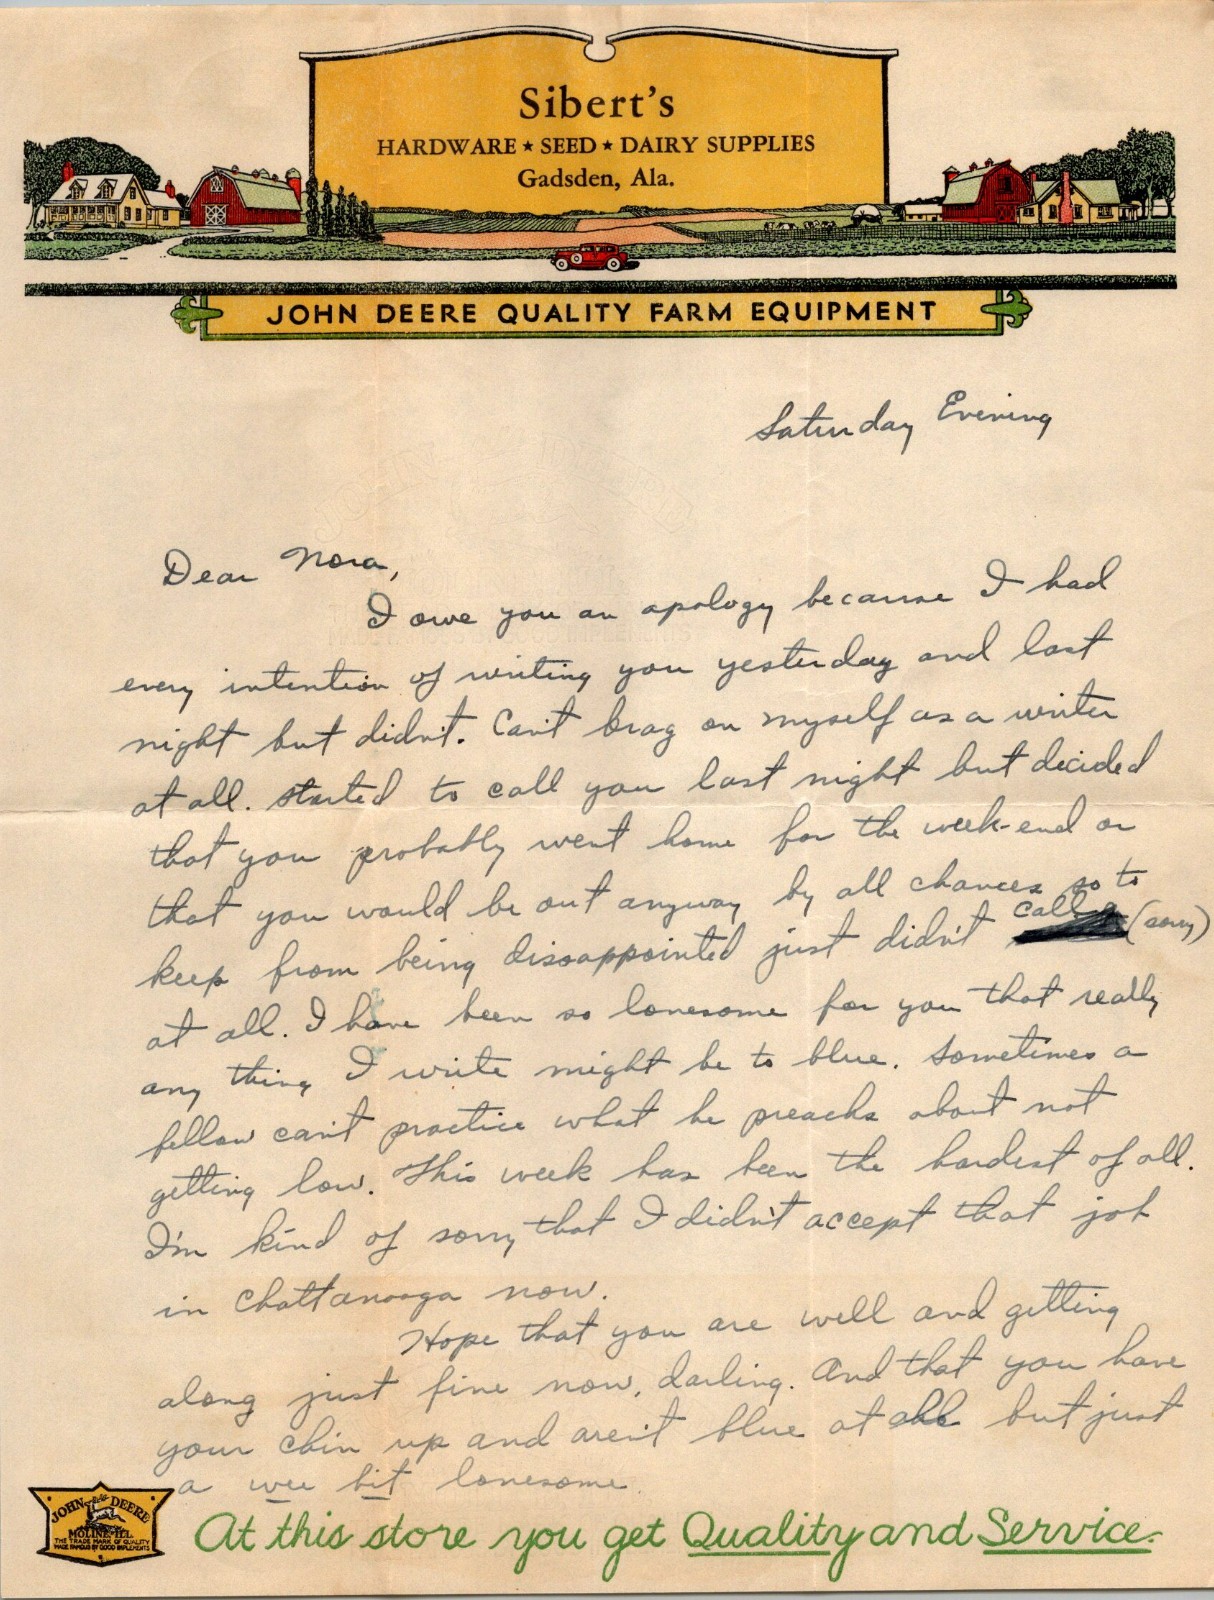 Sibert's
HARDWARE ★ SEED ★ DAIRY SUPPLIES
Gadsden, Ala.
JOHN DEERE QUALITY FARM EQUIPMENT
Saturday Evening
Dear Nora,
I owe you an apology because I had
every intention of writing you yesterday and last
night but didn't. Can't brag on myself as a writer
at all. Started to call you last night but decided
that you probably went home for the week-end or
that you would be out anyway by all chances so to
keep from being disappointed just didn't call (sorry)
at all. I have been so lonesome for you that really
any thing I write might be to blue. Sometimes a
fellow can't practice what he preachs about not
getting low. This week has been the hardest of all.
I'm kind of sorry that I didn't accept that job
in Chattanooga now.
Hope that you are well and getting
along just fine now, darling. And that you have
your chin up and aren't blue at all but just
a wee bit lonesome.
JOHN DEERE
MOLINE, ILL.
THE TRADE MARK OF QUALITY
MADE FAMOUS BY GOOD IMPLEMENTS
At this store you get Quality and Service.